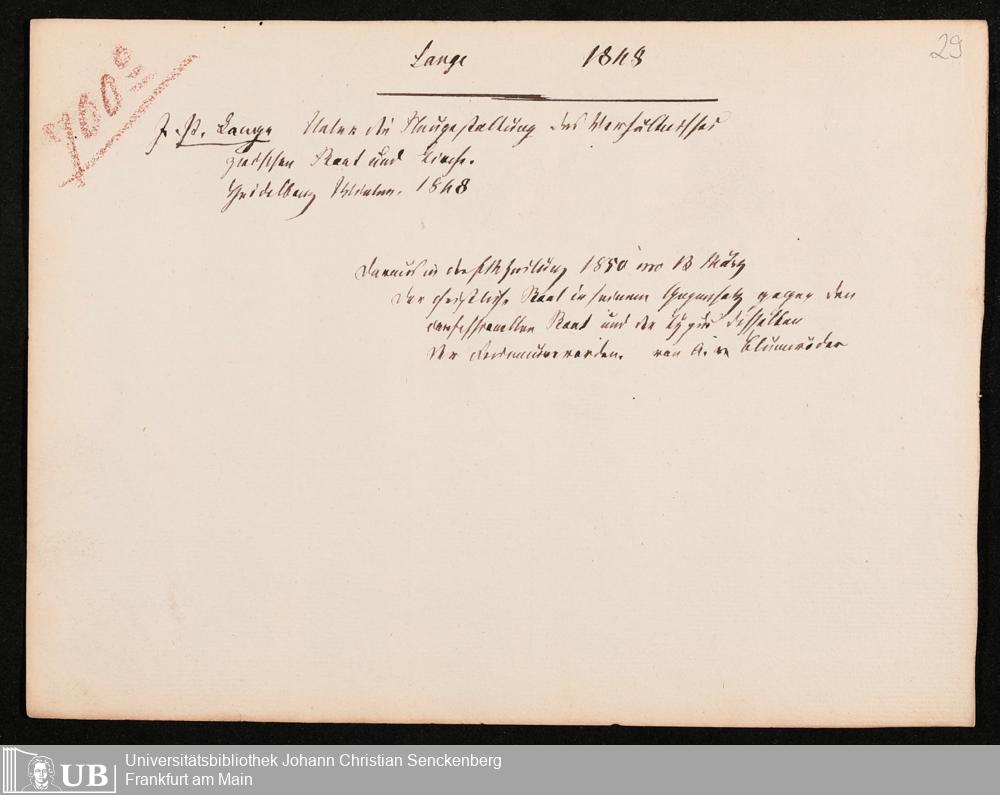 29
Lange 1848
700
J. P. Lange Ueber die Neugestaltung des Verhältnisses
zwischen Staat und Kirche.
Heidelberg Winter. 1848
Daraus in der 1850 no 13 März
der christliche Staat in seinem Gegensatz gegen den
Staat und der Typus desselben
von A. v. Blumröder
UB
Universitätsbibliothek Johann Christian Senckenberg
Frankfurt am Main